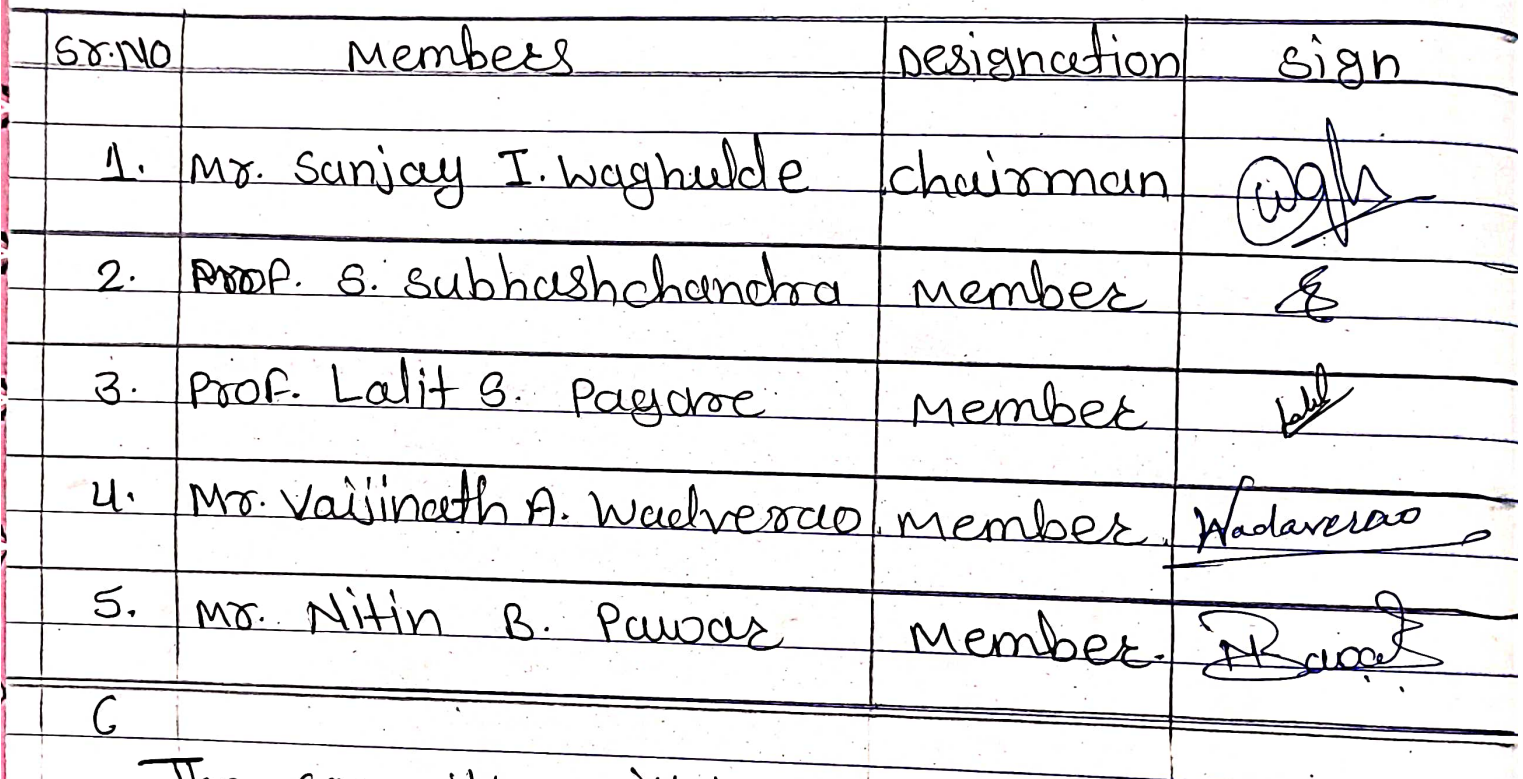 Sr.No Members Designation Sign
1. Mr. Sanjay I. Waghulde Chairman
2. Prof. S. Subhashchandra Member
3. Prof. Lalit S. Pagare Member Lalit
4. Mr. Vaijinath A. Wadverao Member. Wadaverao
5. Mr. Nitin B. Pawar Member.
6
The